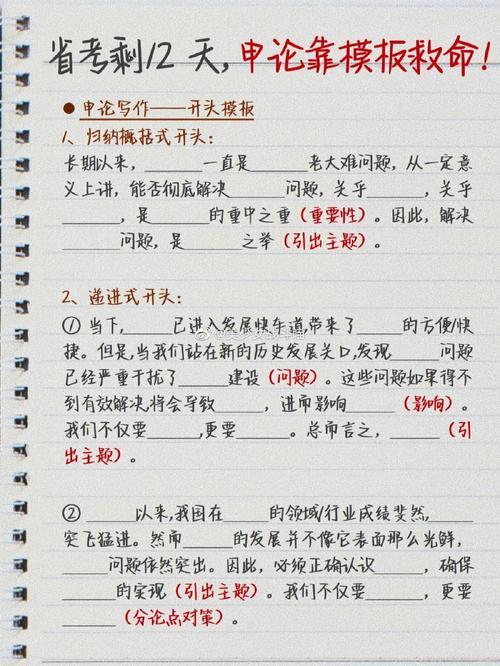 省考剩12天,申论靠模板救命!
●申论写作——开头模板
1、归纳概括式开头:
长期以来,______一直是______老大难问题,从一定意
义上讲,能否彻底解决______问题,关乎______,关乎
______,是______的重中之重(重要性)。因此,解决
______问题,是______之举(引出主题)。
2、递进式开头:
①当下,______已进入发展快车道,带来了______的方便/快
捷。但是,当我们站在新的历史发展关口,发现______问题
已经严重干扰了______建设(问题)。这些问题如果得不
到有效解决,将会导致______,进而影响______(影响)。
我们不仅要______,更要______。总而言之,______(引
出主题)。
②______以来,我国在______的领域/行业成绩斐然,
突飞猛进。然而______的发展并不像它表面那么光鲜,
______问题依然突出。因此,必须正确认识______,确保
______的实现(引出主题)。我们不仅要______,更要
______(分论点对策)。